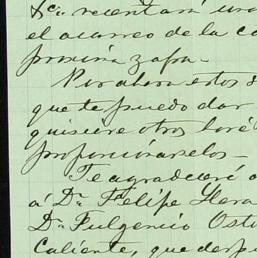 &c. necesitará una
el acarreo de la ca
próxima zafra.
Por ahora estos s
que te puedo dar
quisiere otros haré
proporcionárselos_
Te agradeceré a
á Dn. Felipe Hera
Dn. Fulgencio Ost
Caliente, que desp